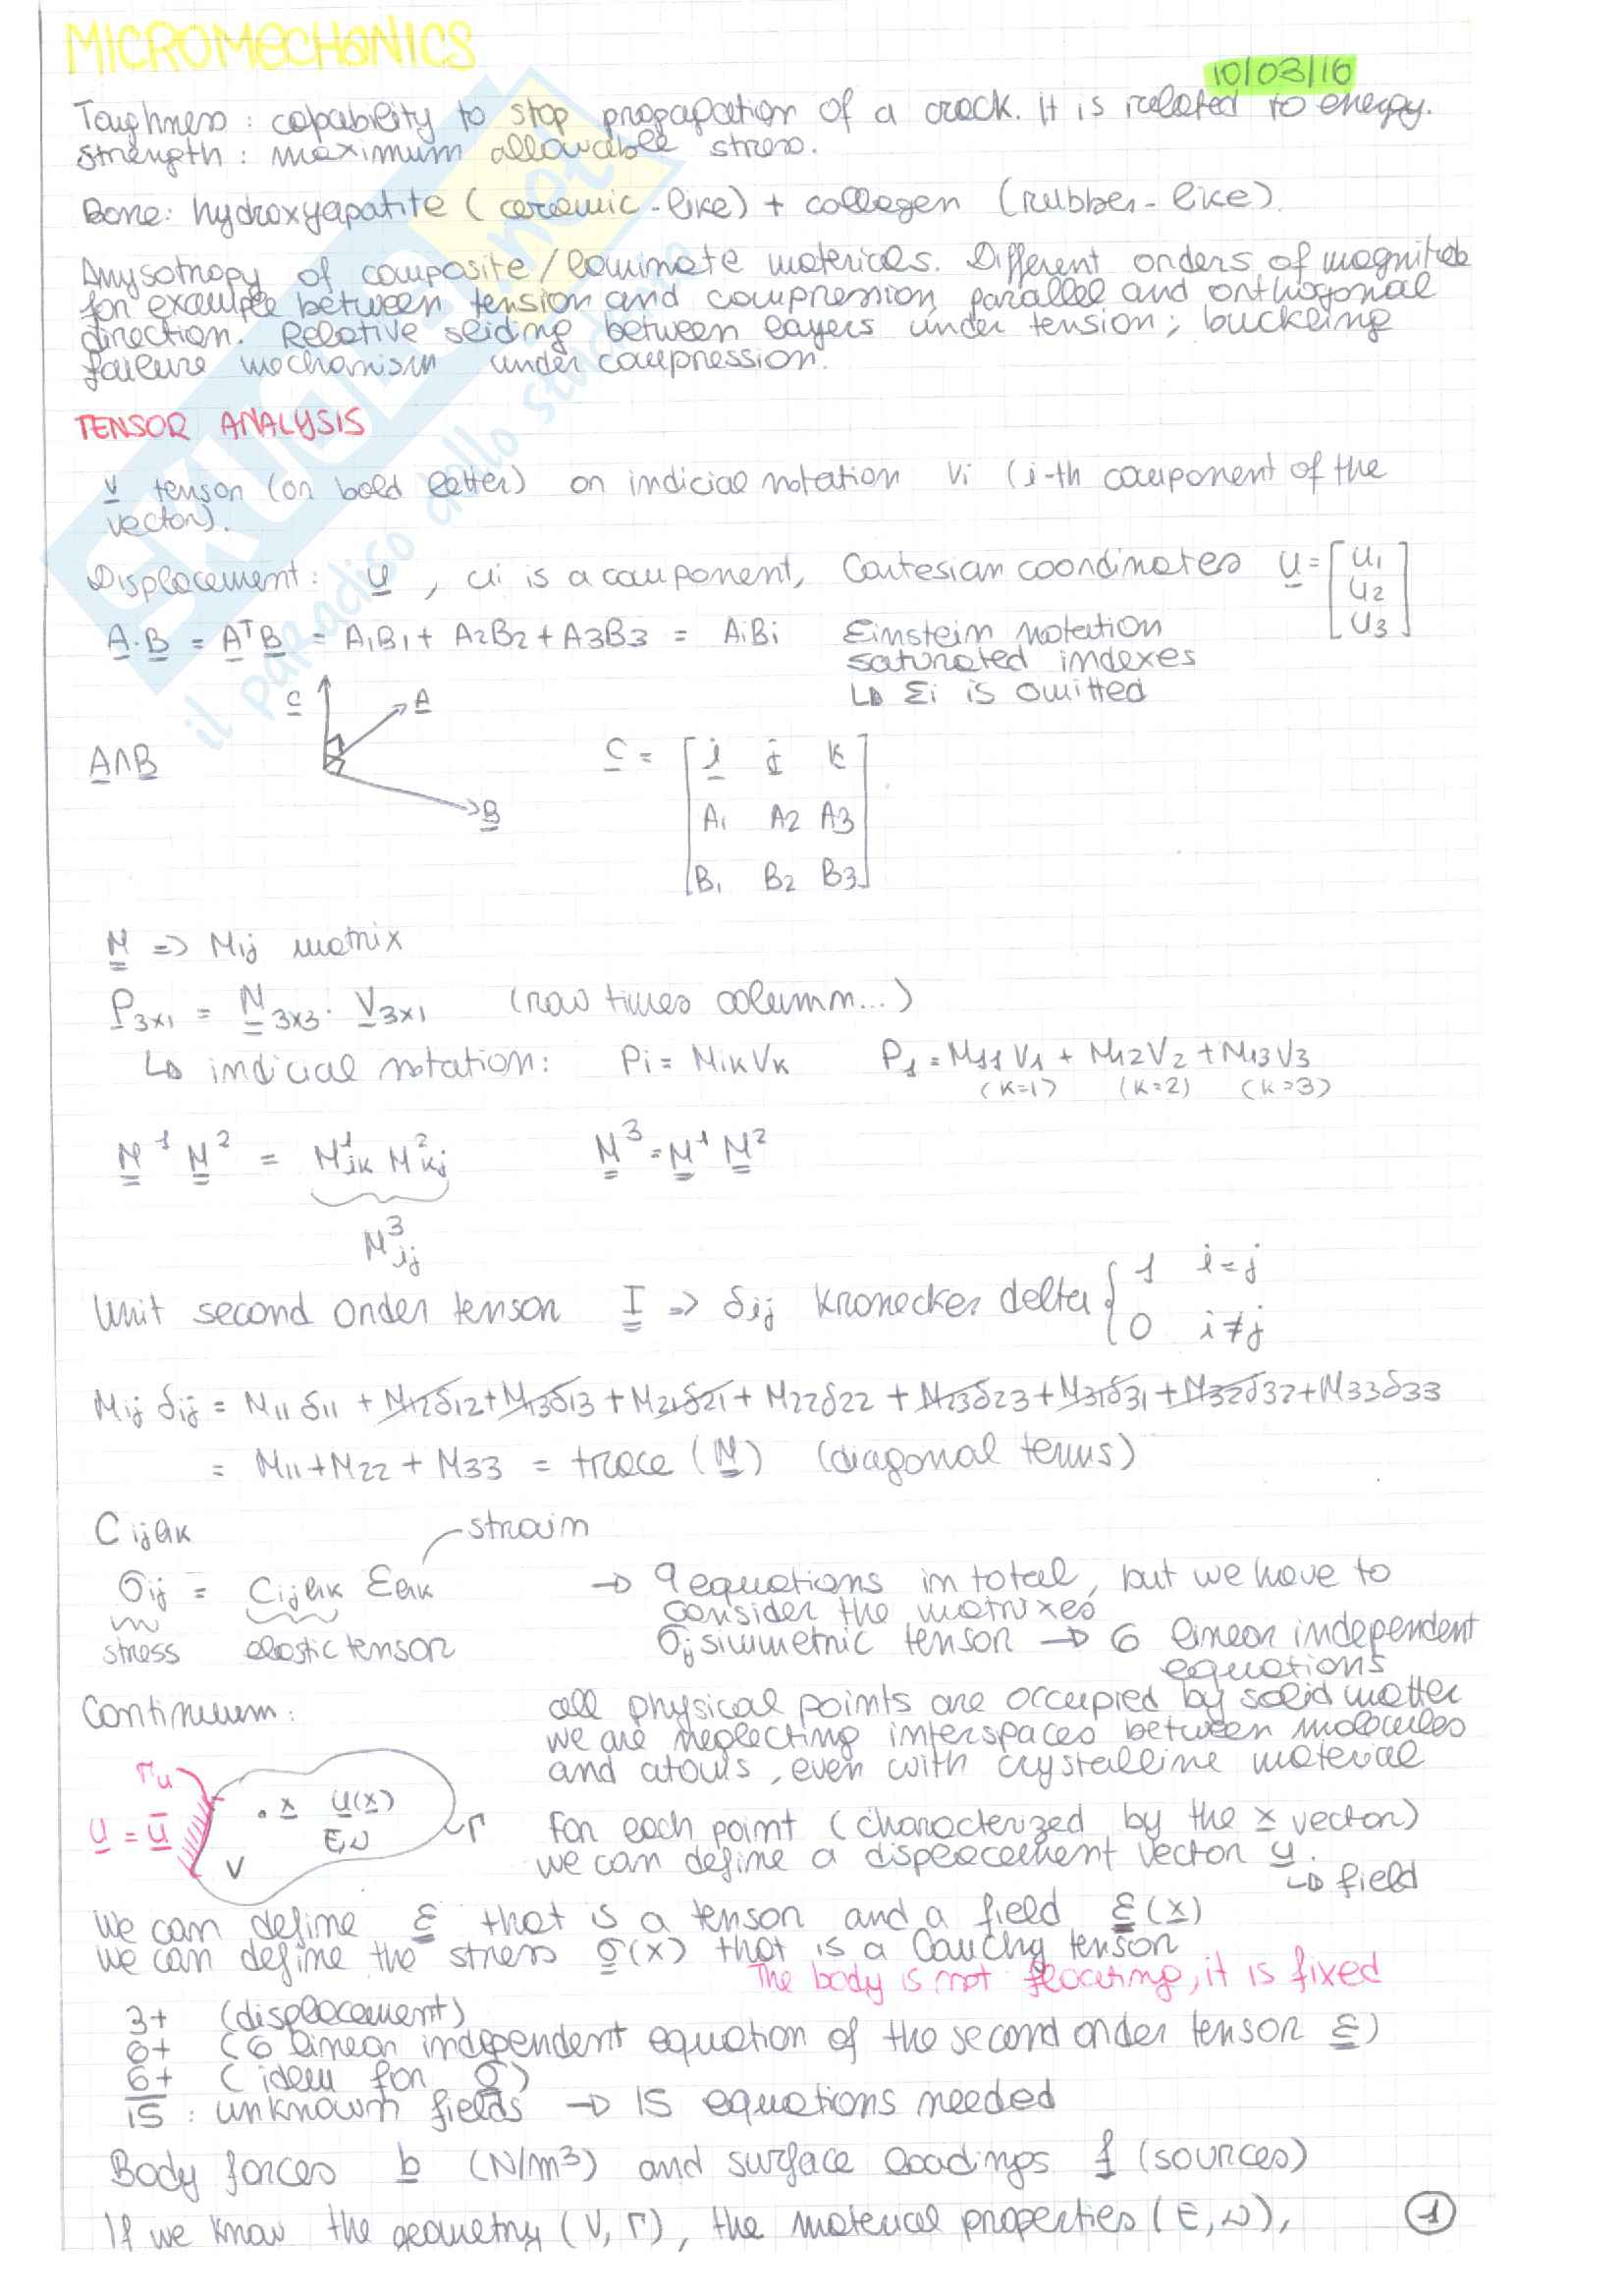 MICROMECHANICS
10/03/16
Toughness: capability to stop propagation of a crack. It is related to energy.
Strength: maximum allowable stress.
Bone: hydroxyapatite (ceramic-like) + collagen (rubber-like).
Anysotropy of composite/laminate materials. Different orders of magnitude
for example between tension and compression, parallel and orthogonal
direction. Relative sliding between layers under tension; buckling
failure mechanism under compression.
TENSOR ANALYSIS
v tensor (or bold letter) or indicial notation vi (i-th component of the
vector).
Displacement: u, ui is a component, Cartesian coordinates u = [u1 u2 u3]
A·B = AᵀB = A1B1 + A2B2 + A3B3 = AiBi Einstein notation
saturated indexes
↳ Σi is omitted
C A B
A∧B C = [i j k
A1 A2 A3
B1 B2 B3]
M => Mij matrix
P3x1 = M3x3 · V3x1 (row times column...)
↳ indicial notation: Pi = MikVk P1 = M11V1 + M12V2 + M13V3
(k=1) (k=2) (k=3)
M¹ M² = M¹ik M²kj M³ = M¹ M²
M³ij
Unit second order tensor I => δij Kronecker delta { 1 i=j
0 i≠j
Mij δij = M11δ11 + M12δ12 + M13δ13 + M21δ21 + M22δ22 + M23δ23 + M31δ31 + M32δ32 + M33δ33
= M11 + M22 + M33 = trace (M) (diagonal terms)
Cijlk strain
σij = Cijlk εlk → 9 equations in total, but we have to
consider the matrixes
stress elastic tensor σij simmetric tensor → 6 linear independent
equations
Continuum: all physical points are occupied by solid matter
we are neglecting interspaces between molecules
and atoms, even with crystalline material
Γu
u = ū
x u(x)
E,ν
V
Γ
For each point (characterized by the x vector)
we can define a displacement vector u.
↳ field
We can define ε that is a tensor and a field ε(x)
we can define the stress σ(x) that is a Cauchy tensor
The body is not floating, it is fixed
3+ (displacement)
6+ (6 linear independent equation of the second order tensor ε)
6+ (idem for σ)
15 : unknown fields → 15 equations needed
Body forces b (N/m³) and surface loadings f (sources)
If we know the geometry (V, Γ), the material properties (E, ν),
1
SKUOLA.net
il paradiso dello studente